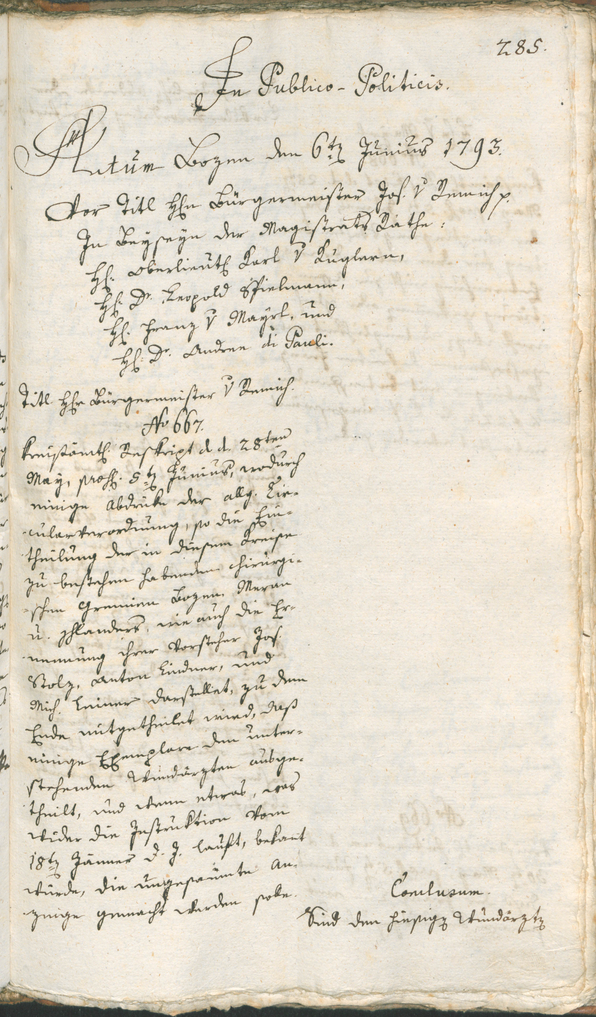 285.
In Publico-Politicis.
Actum Bozen den 6ten Junius 1793.
Vor Titl Hhn Bürgermeister Jos. v Remich p.
In Beyseyn der Magistrats Räthe:
Hh. Oberlieut. Karl v Kuglern,
Hh. Dr. Leopold Spielmann,
Hh. Franz v Mayrl, und
Hh. Dr. Andree di Pauli.
Titl. Hhn Bürgermeister v Remich.
No 667.
Kreisämtl. Reskript d. d. 28ten
May, 5ten Junius, wodurch
einige Abdrüke der allg. Cir-
cularverordnung, so die Ein-
theilung der in diesem Kreise
zu bestehen habenden chirurgi-
schen Gremien Bozen, Meran
u. Schlanders, wie auch die Er-
nennung ihrer Vorsteher Jos.
Stolz, Anton Lindner, und
Mich. Leiner darstellet, zu dem
Ende mitgetheilet wird, daß
einige Exemplare den unter-
stehenden Wundärzten ausge-
theilt, und wenn etwas, was
wider die Instruktion vom
18ten Jänner d. J. lauft, bekant
würde, die ungesäumte An-
zeige gemacht werden solle.
Conclusum.
Sind den hiesigen Wundärzten